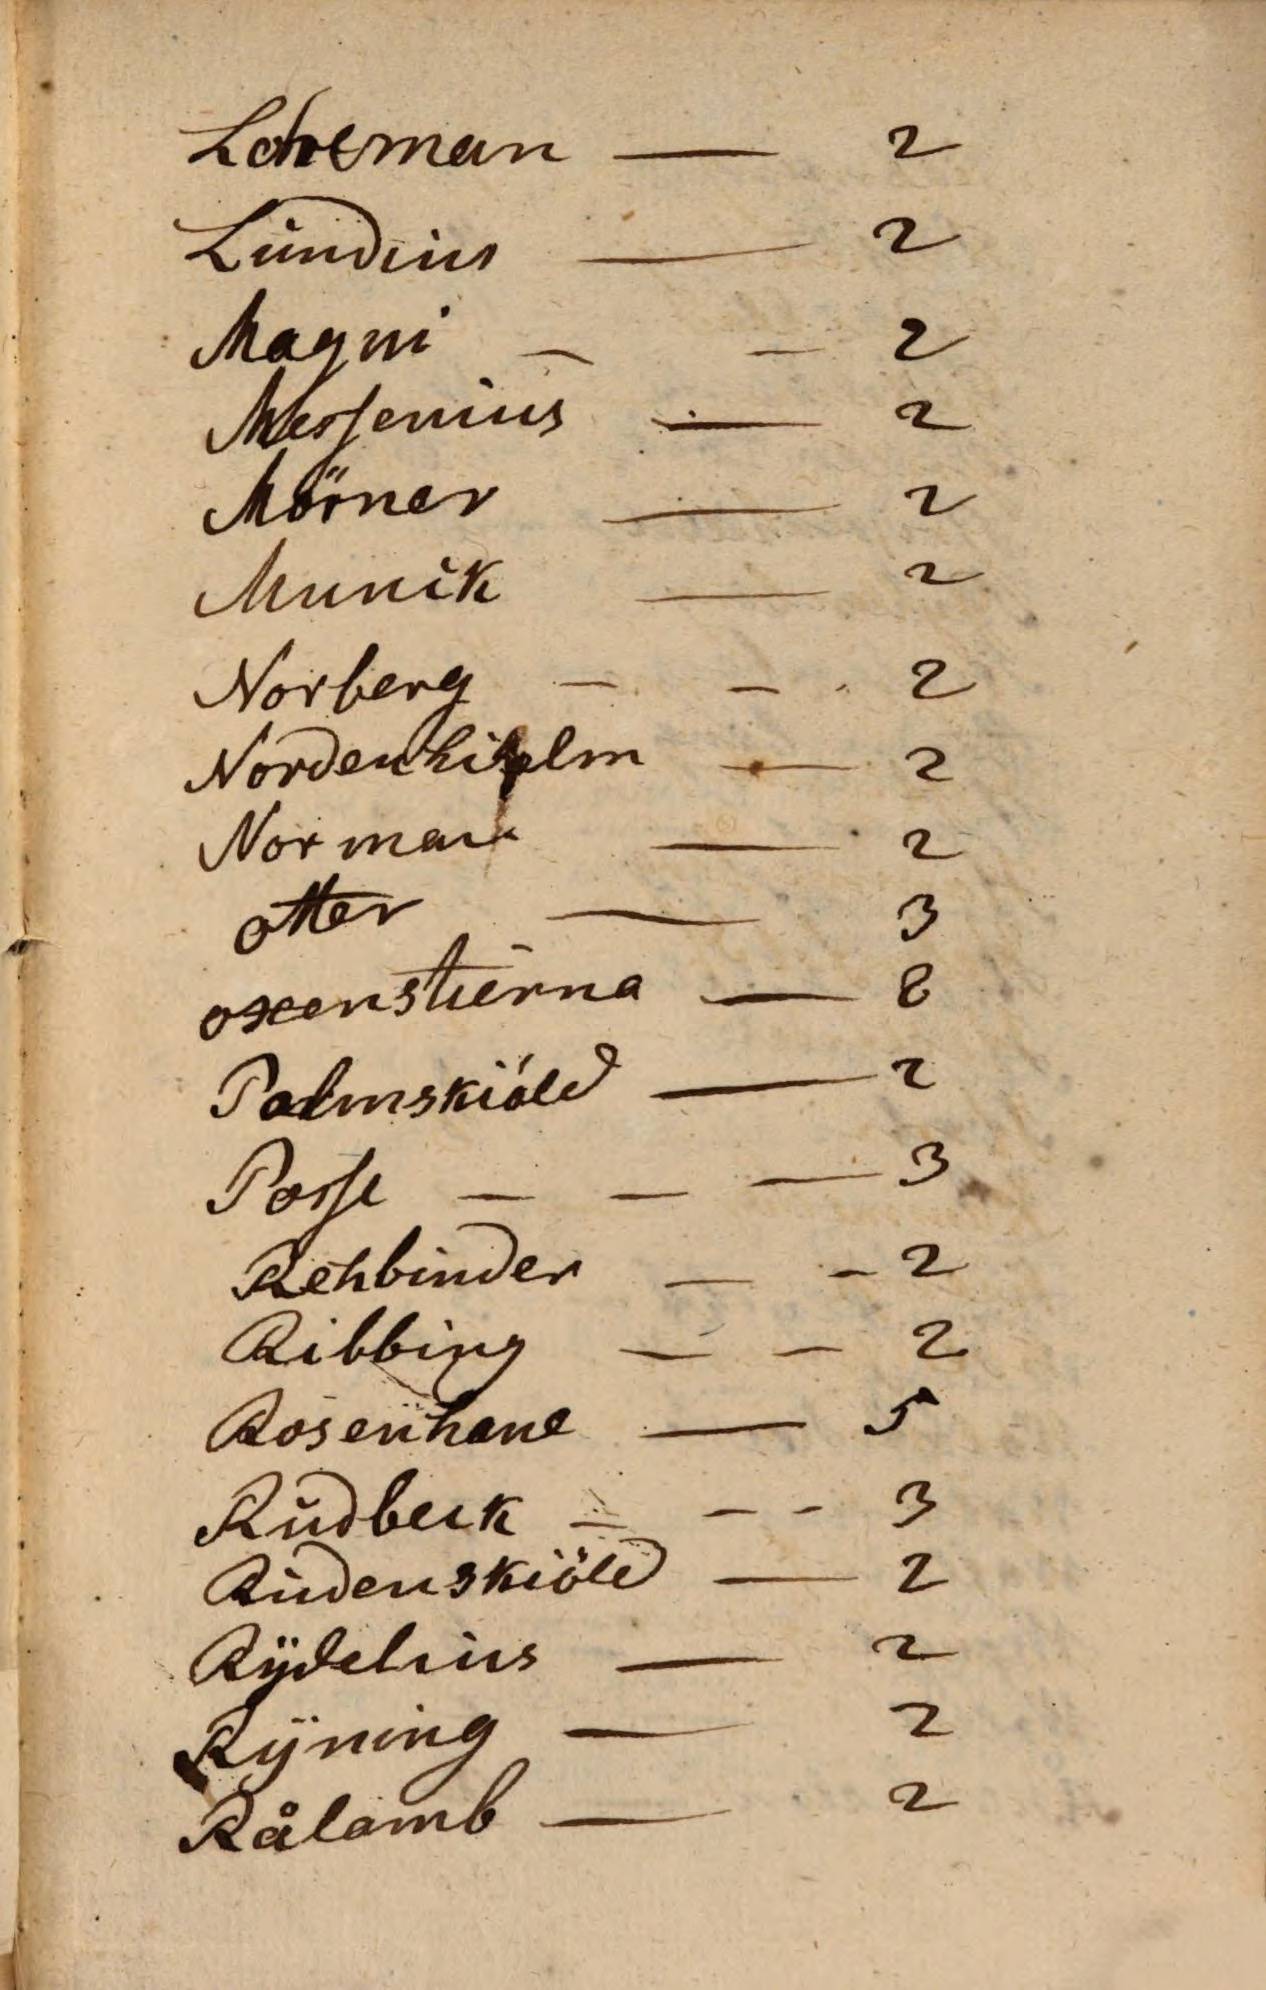 Lohreman — 2
Lündius — 2
Magni - - 2
Messenius — 2
Mörner — 2
Munck — 2
Norberg - - . 2
Nordenhielm — 2
Norman — 2
otter — 3
oxenstierna — 8
Palmskiöld — 2
Posse - - — 3
Rehbinder — - 2
Ribbing - - 2
Rosenhane — 5
Rüdbeck - - - 3
Rüdenskiöld — 2
Rÿdelius — 2
Rÿning — 2
Rålamb — 2